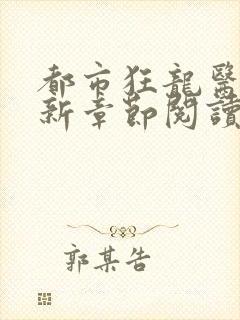 都市狂龍醫
新章節閱讀
郭某告